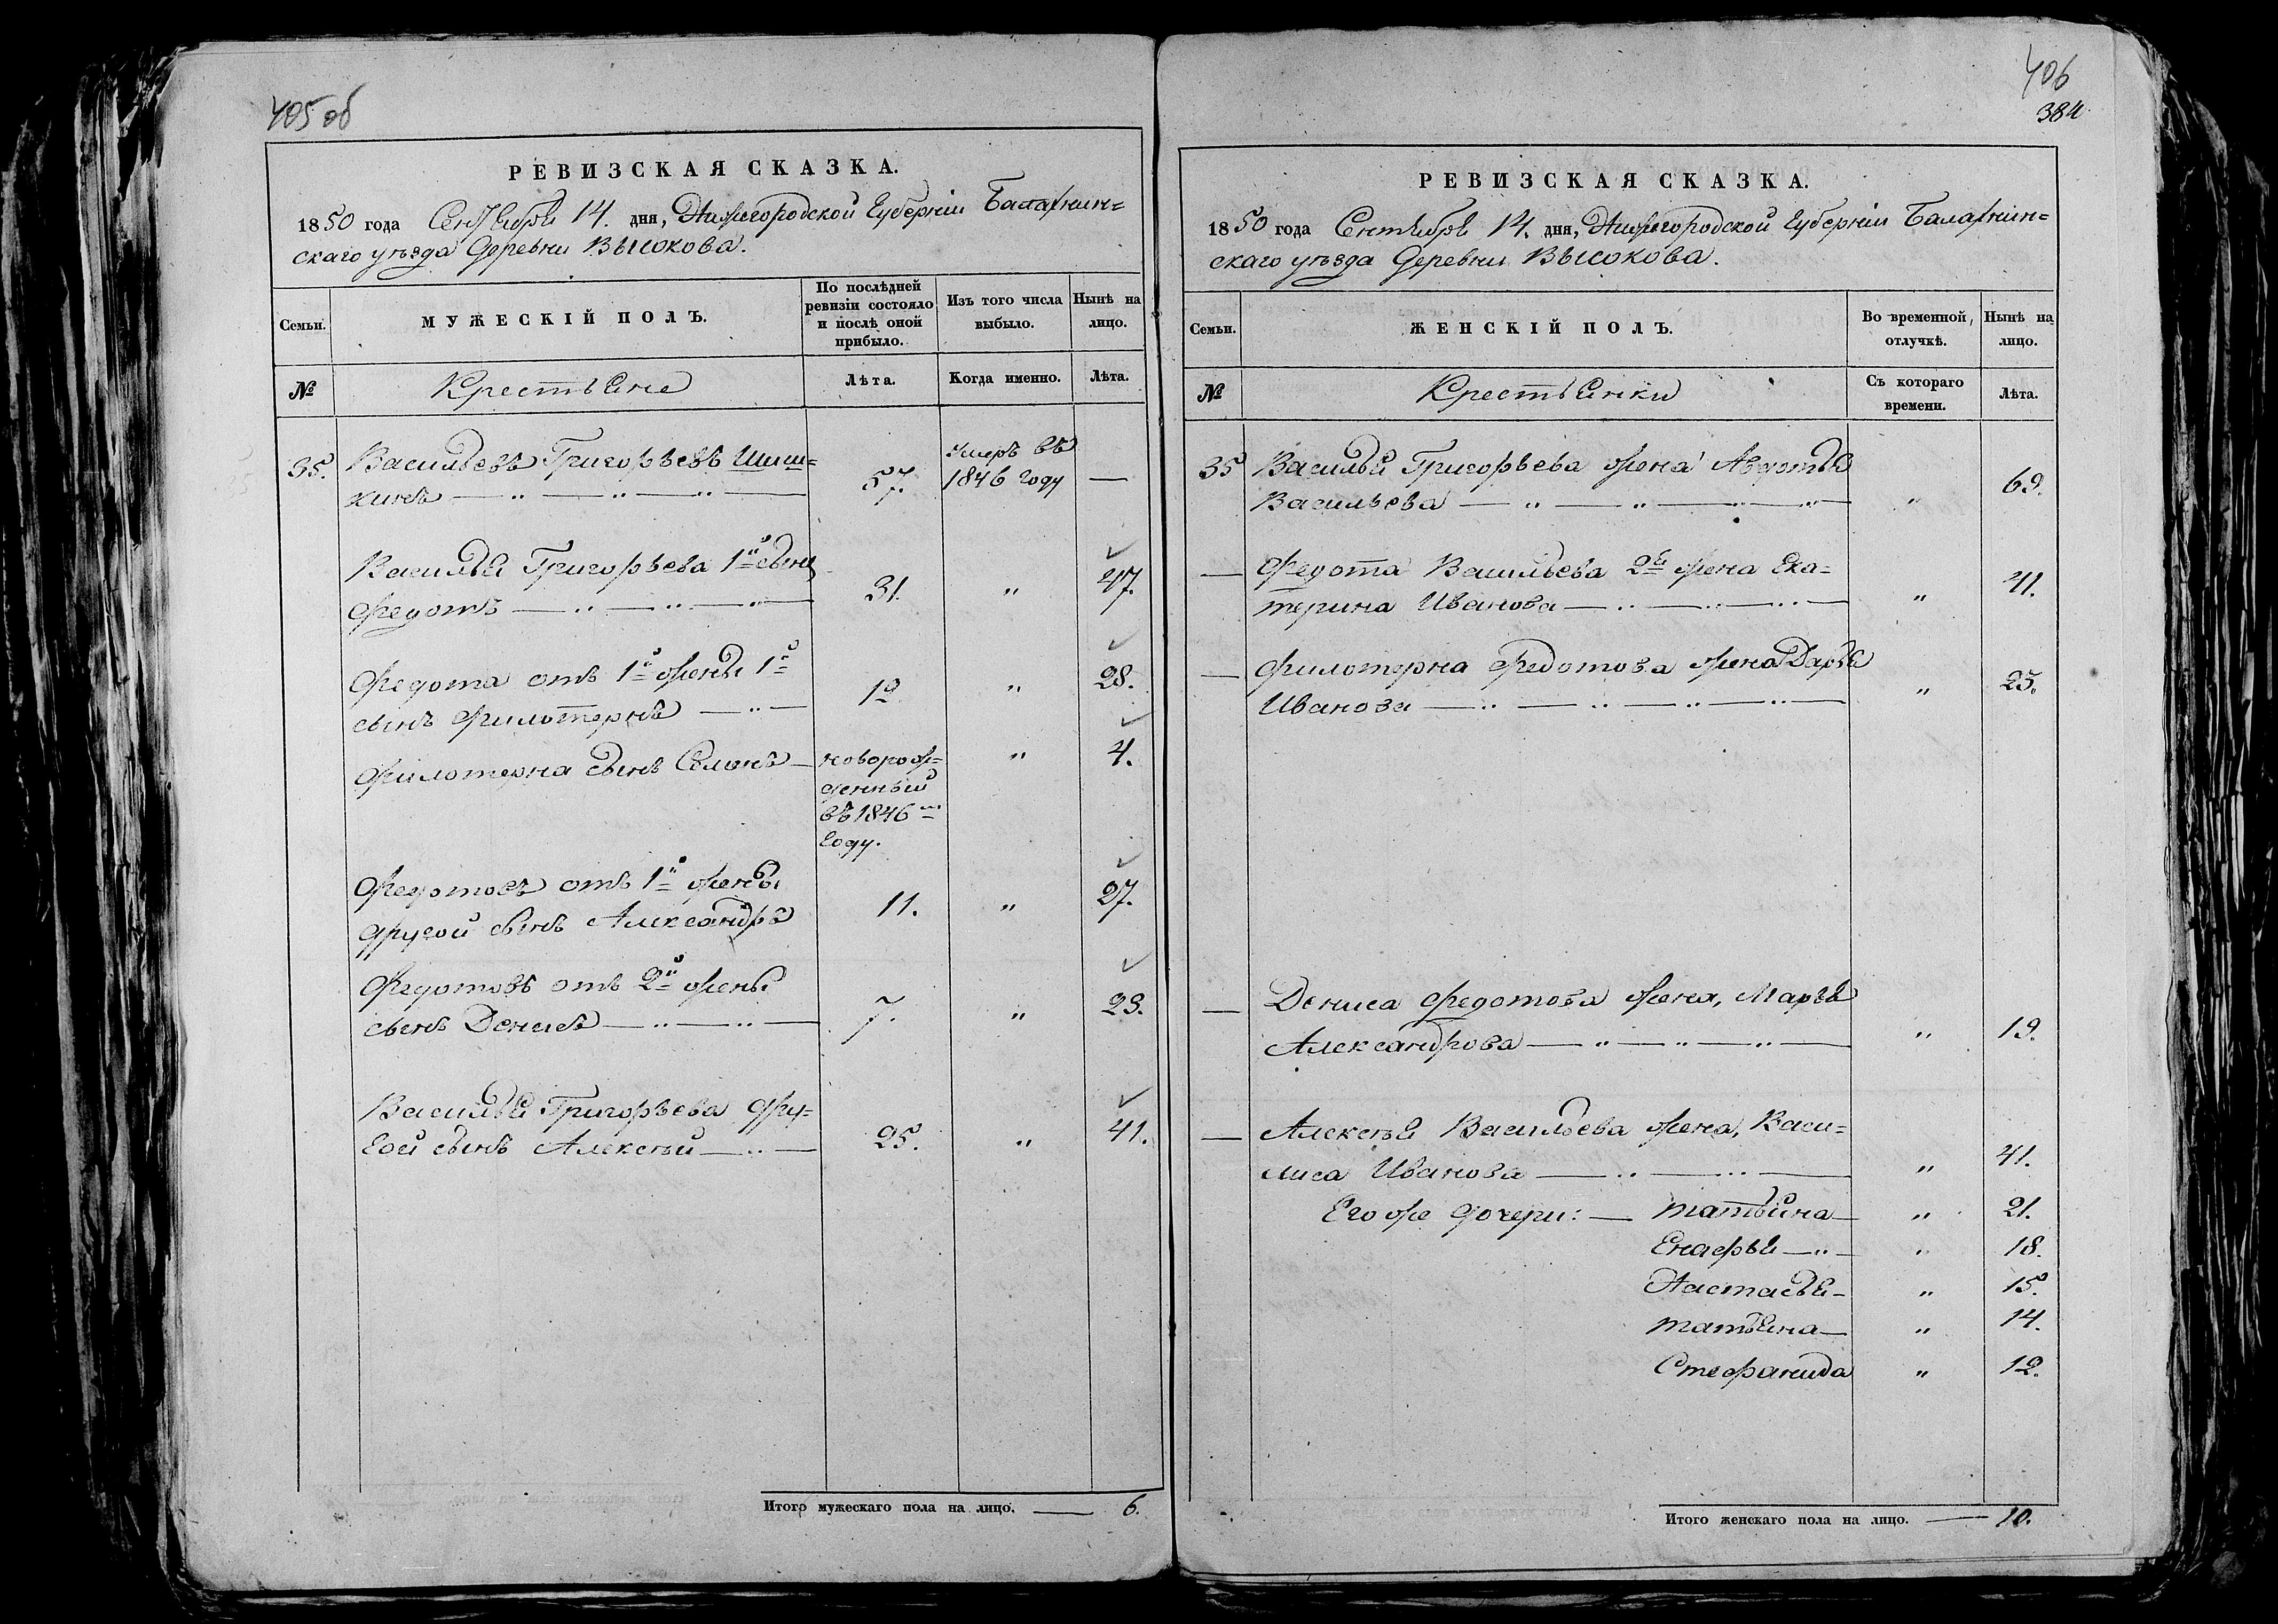 405 об
РЕВИЗСКАЯ СКАЗКА.
1850 года Сентября 14. дня, Нижегородской Губернiи Балахнин=
скаго уѣзда Деревни Высокова.
Семьи.
МУЖЕСКIЙ ПОЛЪ.
По послѣдней ревизiи состояло и послѣ оной прибыло.
Изъ того числа выбыло.
Нынѣ на лицо.
№
Крестьяне
Лѣта.
Когда именно.
Лѣта.
35. Васильевъ Григорьевъ Шиш=
кинъ — „ — „ — „ — 57. Умеръ въ 1846 году —
Василья Григорьева 1й сынъ
Федотъ — „ — „ — „ — 31. „ 47.
Федота отъ 1й жены 1й
сынъ Филотернъ — „ — 12 „ 28.
Филотерна сынъ Семенъ — новорож=
денный
въ 1846м
году. „ 4.
Федотовъ отъ 1й жены
другой сынъ Александръ 11. „ 27.
Федотовъ отъ 2й жены
сынъ Денисъ — „ — „ — 7. „ 23.
Василья Григорьева дру=
гой сынъ Алексѣй — „ — 25. „ 41.
Итого мужескаго пола на лицо. — 6.
406
384
РЕВИЗСКАЯ СКАЗКА.
1850 года Сентября 14. дня, Нижегородской Губернiи Балахнин=
скаго уѣзда Деревни Высокова.
Семьи.
ЖЕНСКIЙ ПОЛЪ.
Во временной отлучкѣ.
Нынѣ на лицо.
№
Крестьянки
Съ котораго времени.
Лѣта.
35 Василья Григорьева жена Авдотья
Васильева — „ — „ — „ — „ — „ 69.
— Федота Васильева 2я жена Ека=
терина Иванова — „ — „ — „ — „ 41.
— Филотерна Федотова жена Дарья
Иванова — „ — „ — „ — „ — „ 25.
— Дениса Федотова жена, Марья
Александрова — „ — „ — „ — „ 19.
— Алексѣя Васильева жена, Васи=
лиса Иванова — „ — „ — „ 41.
Его же дочери: — Татьяна — „ 21.
Енафья — „ — „ 18.
Настасья — „ 15.
Татьяна — „ 14.
Стефанида „ 12.
Итого женскаго пола на лицо. — 10.